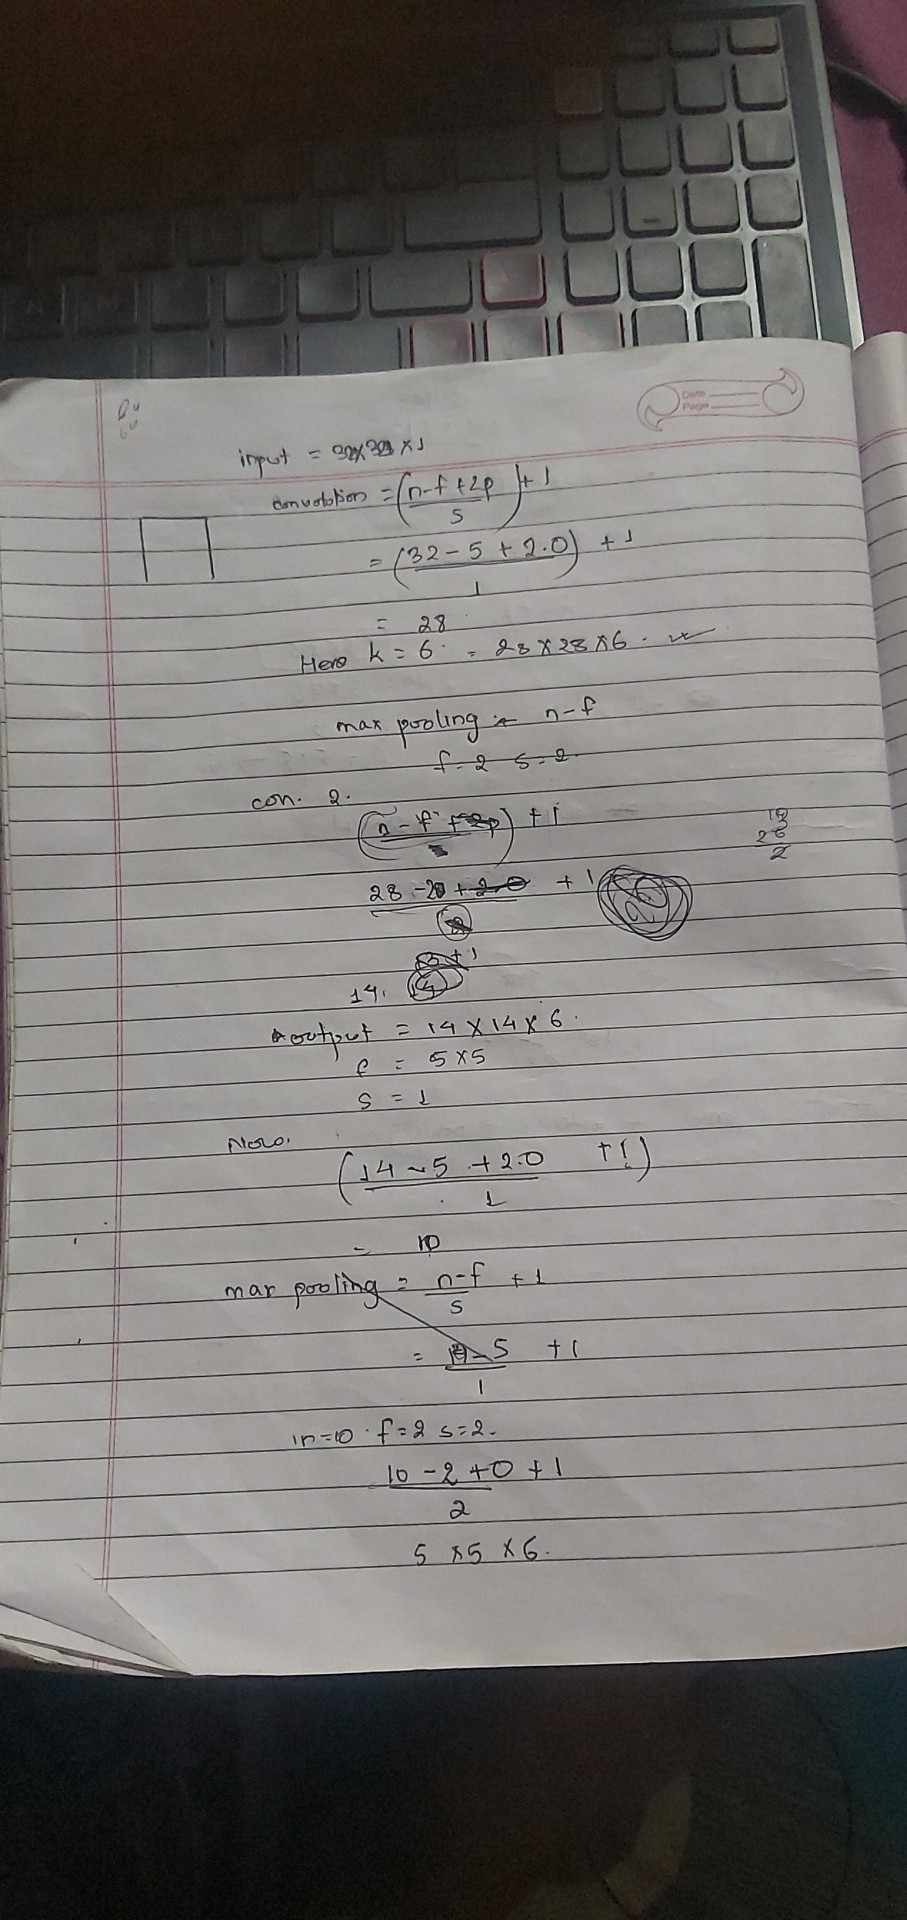 Date
Page
input = 32x32 x 1
convolution = (n-f+2p / s) + 1
= (32 - 5 + 2.0 / 1) + 1
= 28
Here k = 6. = 28 x 28 x 6.
max pooling :- n-f
f = 2 s = 2.
con. 2.
(n - f + 2p) + 1
28 - 2 + 2.0 + 1
19
26
2
3 + 1
14. 14
output = 14 x 14 x 6.
f = 5 x 5
s = 1
Now,
(14 - 5 + 2.0 / 1 + 1)
= 10
max pooling = n-f / s + 1
= - 5 / 1 + 1
in = 10 . f = 2 s = 2.
10 - 2 + 0 / 2 + 1
5 x 5 x 6.